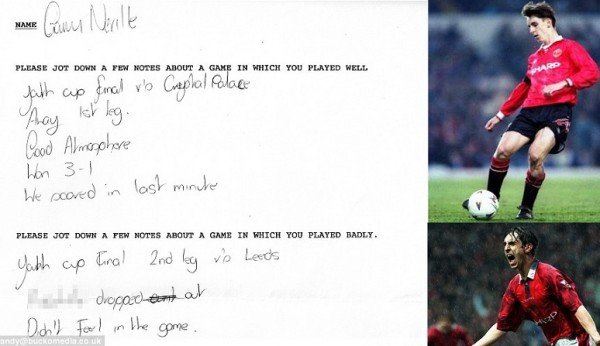 NAME Gary Neville
PLEASE JOT DOWN A FEW NOTES ABOUT A GAME IN WHICH YOU PLAYED WELL
Youth cup final v's Crystal Palace
Away 1st leg.
Good Atmosphere
Won 3-1
We scored in last minute
PLEASE JOT DOWN A FEW NOTES ABOUT A GAME IN WHICH YOU PLAYED BADLY.
Youth cup Final 2nd leg v's Leeds
dropped out
Didn't Feel in the game.
andy@buckomedia.co.uk
SHARP
SHARP